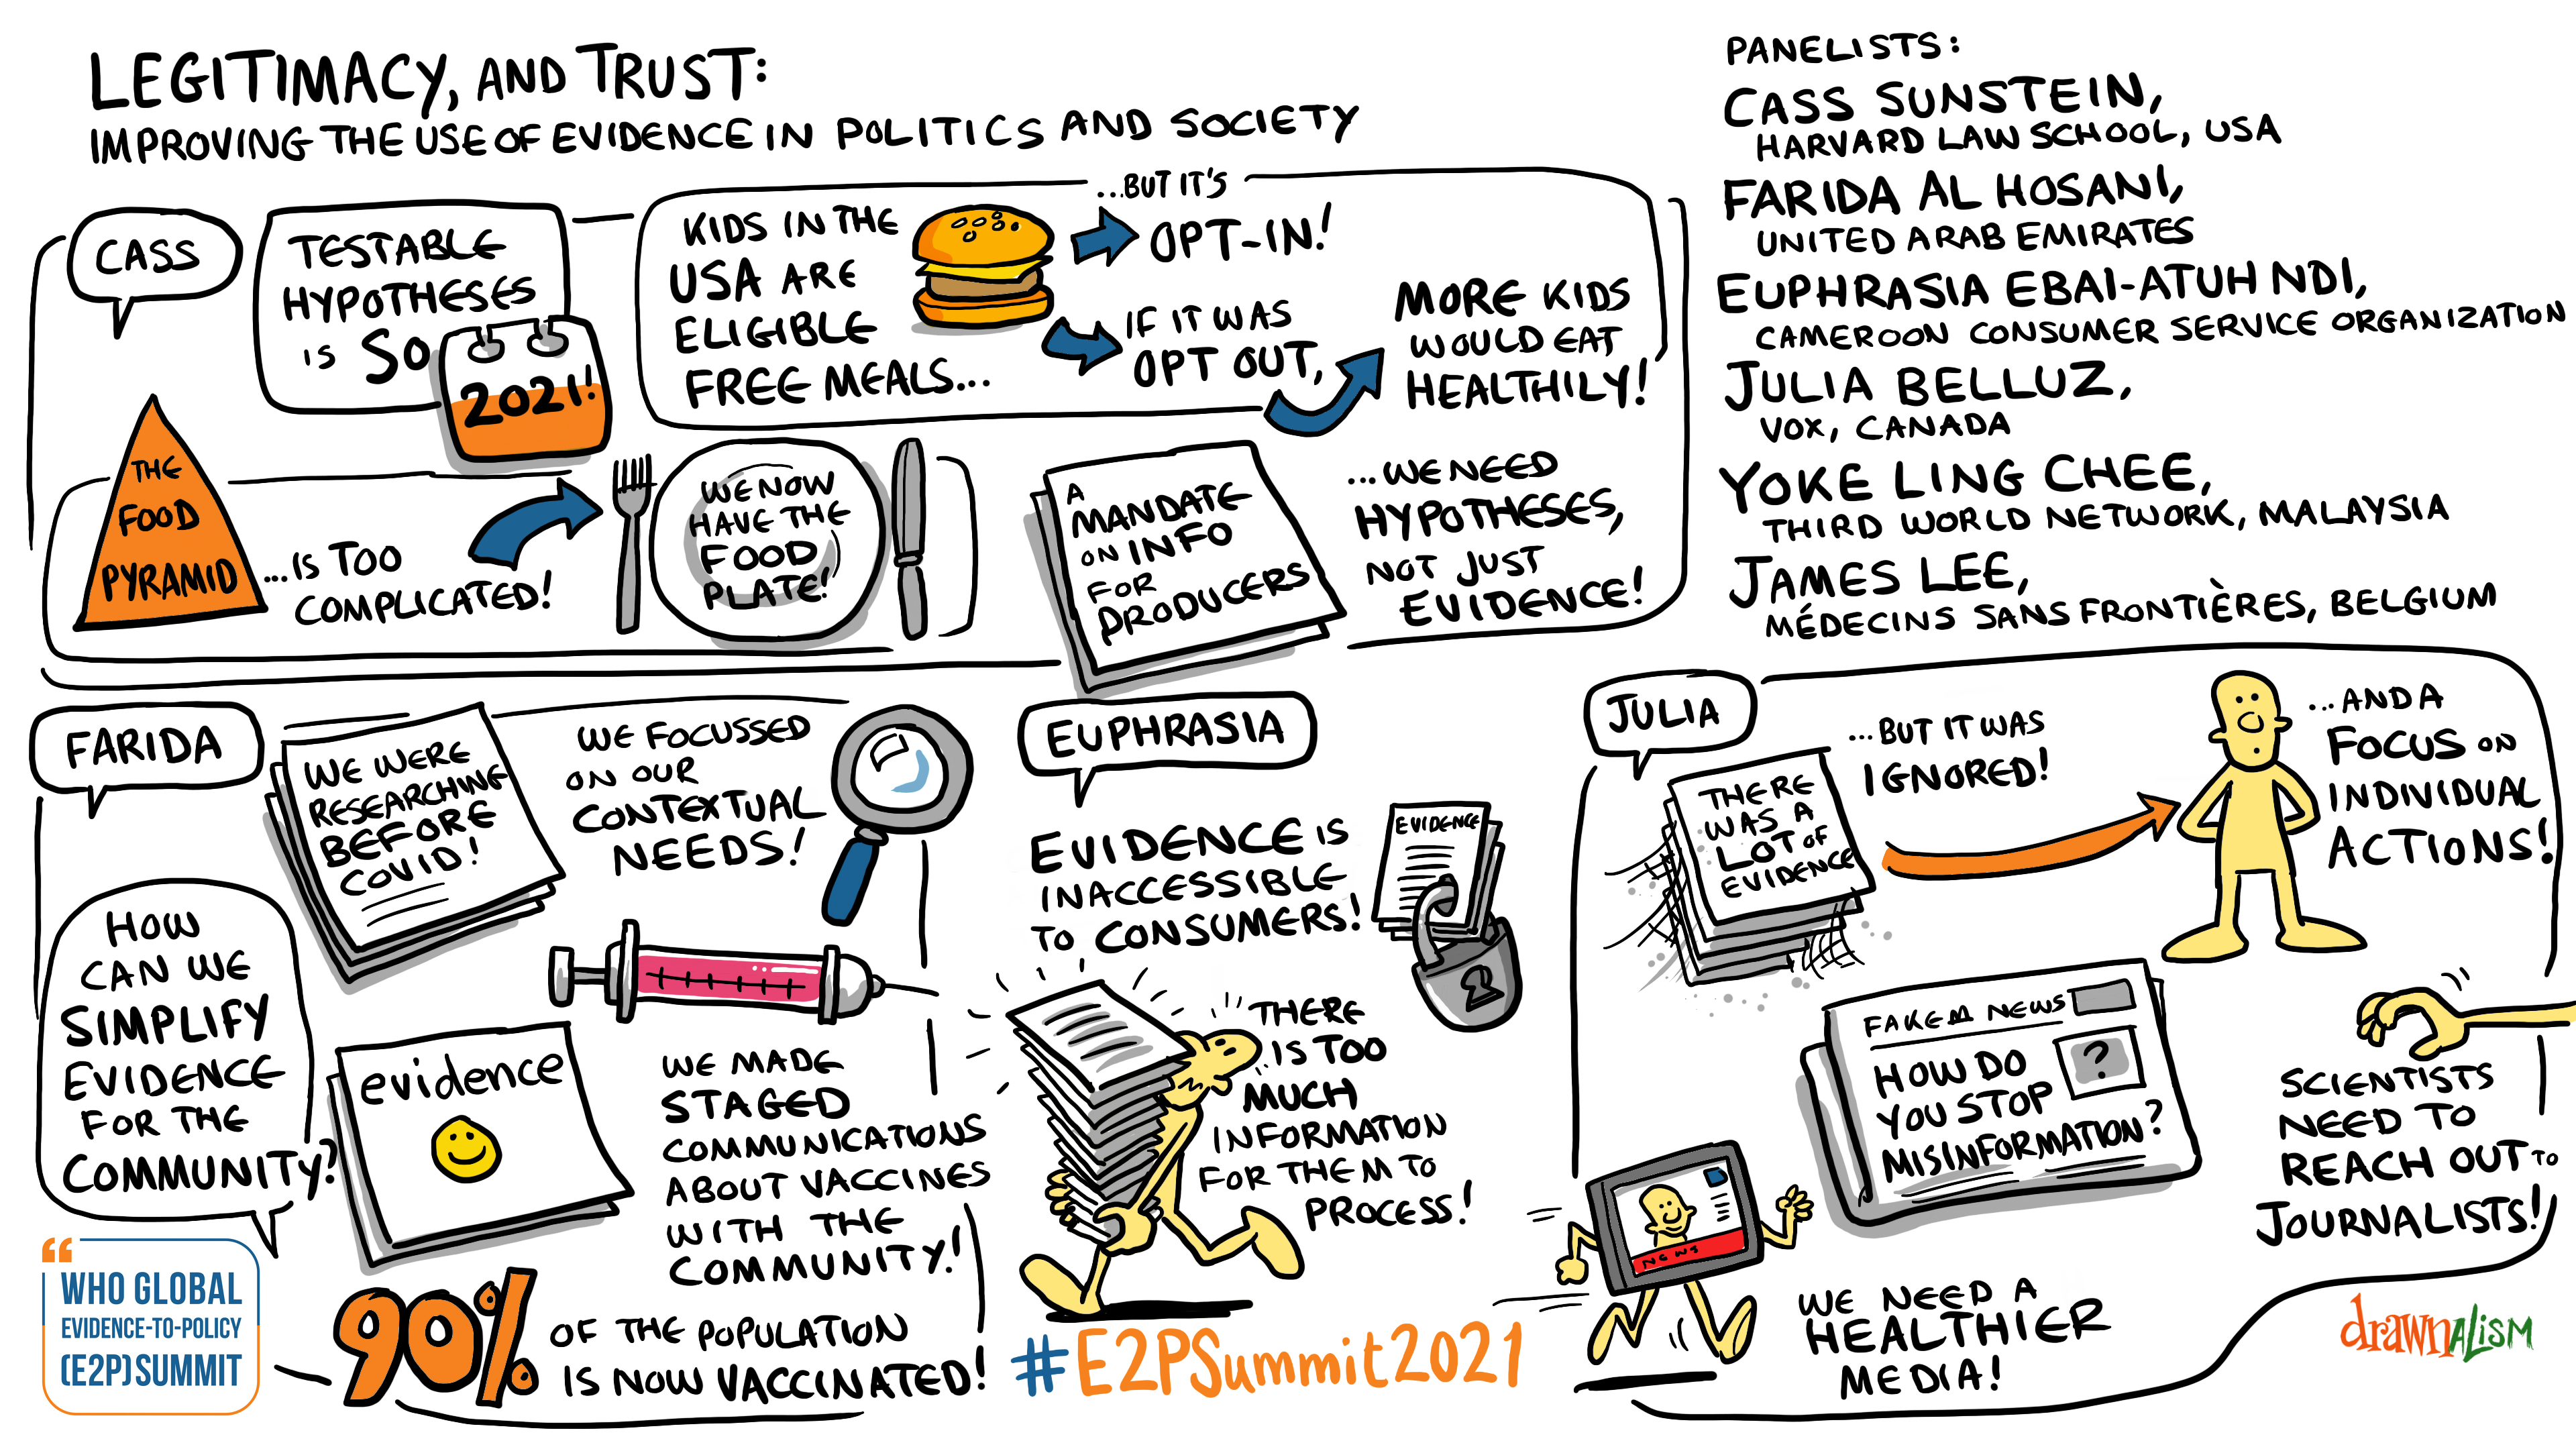 LEGITIMACY, AND TRUST:
IMPROVING THE USE OF EVIDENCE IN POLITICS AND SOCIETY
PANELISTS:
CASS SUNSTEIN,
HARVARD LAW SCHOOL, USA
FARIDA AL HOSANI,
UNITED ARAB EMIRATES
EUPHRASIA EBAI-ATUH NDI,
CAMEROON CONSUMER SERVICE ORGANIZATION
JULIA BELLUZ,
VOX, CANADA
YOKE LING CHEE,
THIRD WORLD NETWORK, MALAYSIA
JAMES LEE,
MÉDECINS SANS FRONTIÈRES, BELGIUM
CASS
TESTABLE
HYPOTHESES
IS SO
2021!
KIDS IN THE
USA ARE
ELIGIBLE
FREE MEALS...
...BUT IT'S
OPT-IN!
IF IT WAS
OPT OUT,
MORE KIDS
WOULD EAT
HEALTHILY!
THE
FOOD
PYRAMID
...IS TOO
COMPLICATED!
WE NOW
HAVE THE
FOOD
PLATE!
A
MANDATE
ON INFO
FOR
PRODUCERS
...WE NEED
HYPOTHESES,
NOT JUST
EVIDENCE!
FARIDA
WE WERE
RESEARCHING
BEFORE
COVID!
WE FOCUSSED
ON OUR
CONTEXTUAL
NEEDS!
HOW
CAN WE
SIMPLIFY
EVIDENCE
FOR THE
COMMUNITY?
evidence
WE MADE
STAGED
COMMUNICATIONS
ABOUT VACCINES
WITH THE
COMMUNITY!
90%
OF THE POPULATION
IS NOW VACCINATED!
EUPHRASIA
EVIDENCE IS
INACCESSIBLE
TO CONSUMERS!
EVIDENCE
THERE
IS TOO
MUCH
INFORMATION
FOR THEM TO
PROCESS!
JULIA
THERE
WAS A
LOT OF
EVIDENCE
...BUT IT WAS
IGNORED!
...AND A
FOCUS ON
INDIVIDUAL
ACTIONS!
NEWS
HOW DO
YOU STOP
MISINFORMATION?
?
SCIENTISTS
NEED TO
REACH OUT TO
JOURNALISTS!
NEWS
WE NEED A
HEALTHIER
MEDIA!
“
WHO GLOBAL
EVIDENCE-TO-POLICY
(E2P) SUMMIT
#E2PSummit2021
drawnalism